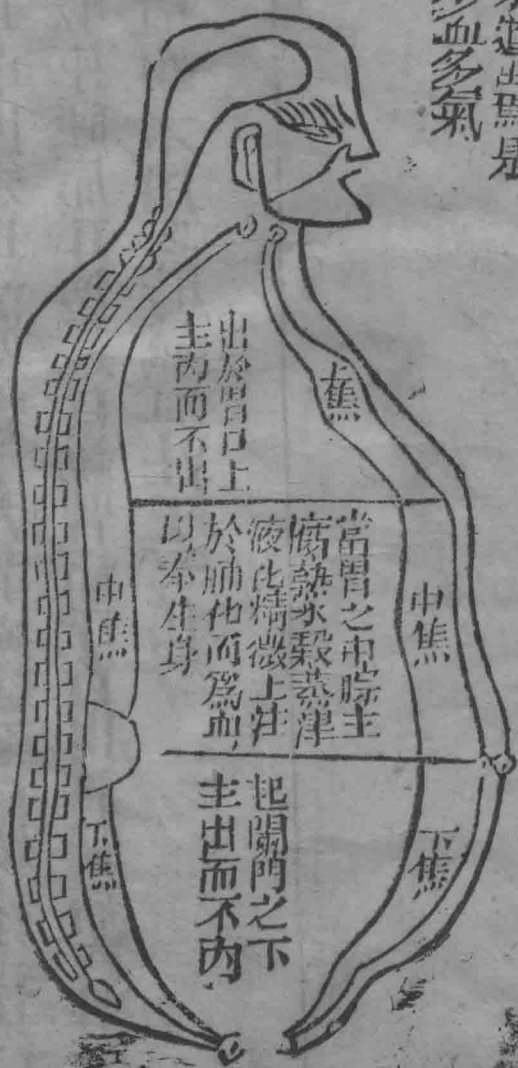 水道出焉是
多血多氣
上焦
出於胃口上
主內而不出
中焦
當胃之中脘主
腐熟水穀蒸津
液化精微上注
於肺化而爲血
以奉生身
中焦
下焦
起闌門之下
主出而不內
下焦